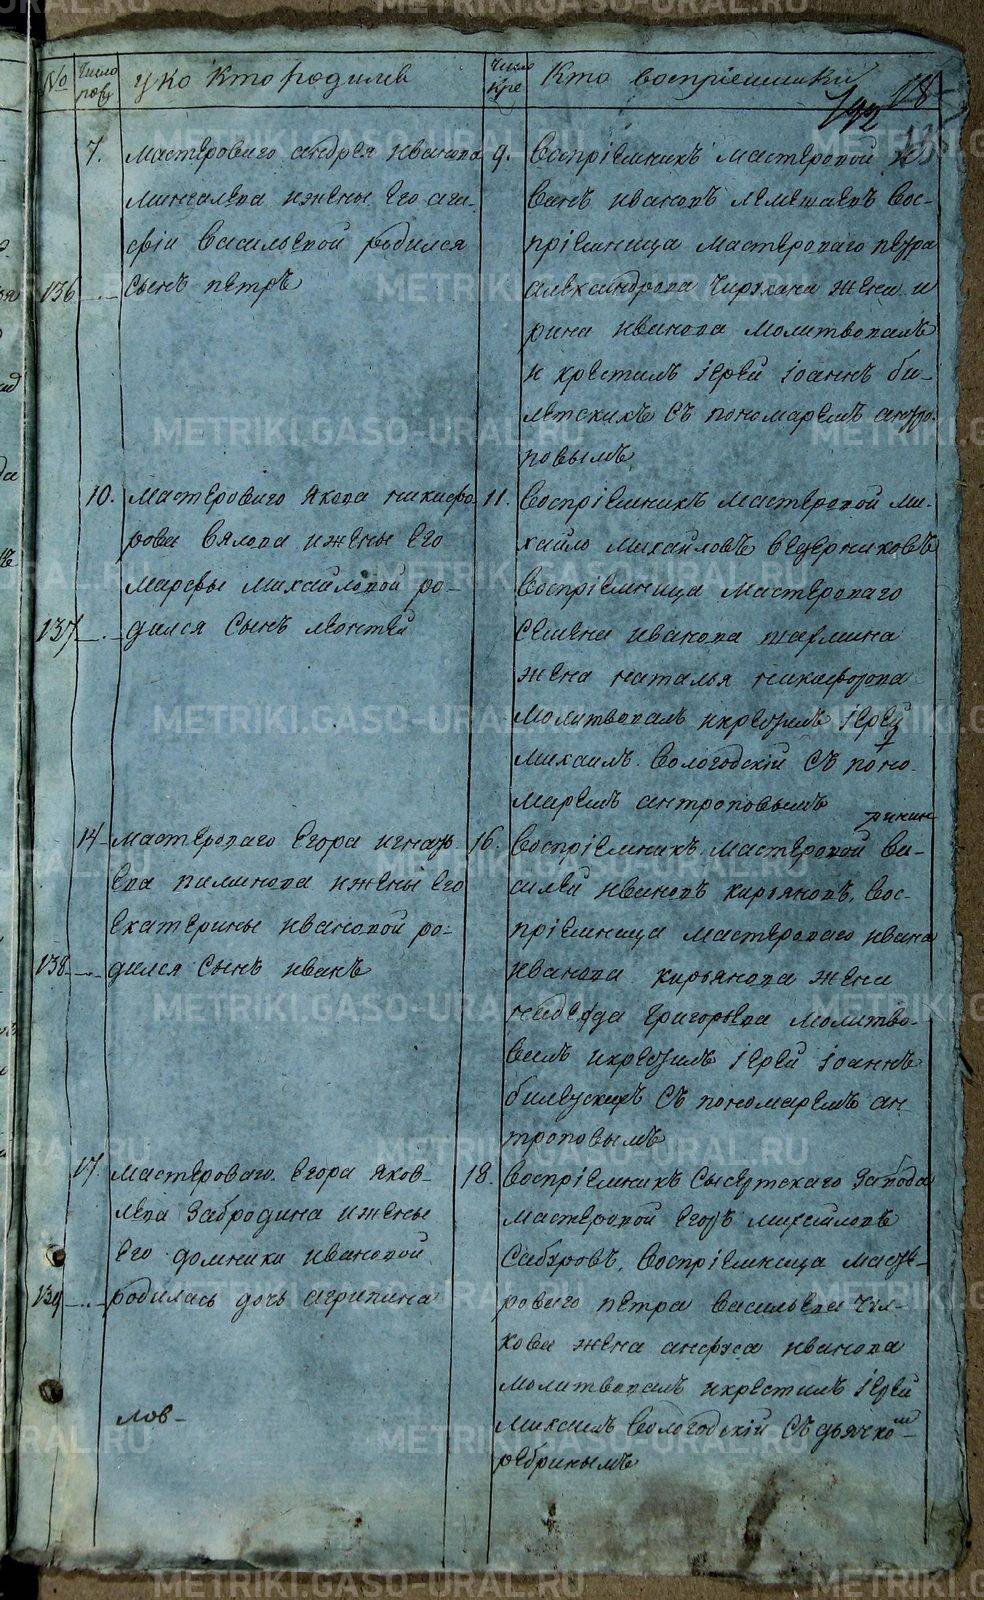 No
Число рожд
у кого кто родился
Число кре
Кто восприемники
192
7.
мастероваго андрея иванова
мингалева и жены его ага-
фии Васильевой родился
136
сынъ петръ
9.
Восприемникъ мастеровой и-
ванъ ивановъ лемешевъ Вос-
приемница мастероваго петра
александрова жена и
рина иванова молитвовалъ
и крестилъ иерей иоаннъ би-
летскихъ съ пономаремъ антро-
повымъ
10.
мастероваго якова никифо
рова вялова и жены его
марфы михайловой ро-
137
дился Сынъ леонтей
11.
Восприемникъ мастеровой ми-
хайло михайловъ ведерниковъ
Восприемница мастероваго
Семена иванова
жена наталья никифорова
молитвовалъ и крестилъ иерей
михаилъ Вологодский Съ поно
маремъ антроповымъ
14
мастероваго егора игнать
ева пилинова и жены его
екатерины ивановой ро-
138
дился Сынъ иванъ
16.
Восприемникъ мастеровой ва-
силей ивановъ кирьяновъ, Вос-
приемница мастероваго ивана
иванова кирьянова жена
надежда григорьева молитво-
валъ и крестилъ иерей иоаннъ
билетскихъ Съ пономаремъ ан
троповымъ
17.
мастероваго егора яков-
лева Забродина и жены
его домники ивановой
139
родилась дочь агрипина
18.
Восприемникъ Сысертскаго завода
мастеровой егоръ михайловъ
Сабуровъ, Восприемница масте-
роваго петра васильева чул-
кова жена анфуса иванова
молитвовалъ и крестилъ иерей
михаилъ Вологодский Съ дьячкомъ
ребринымъ
лов-
METRIKI.GASO-URAL.RU